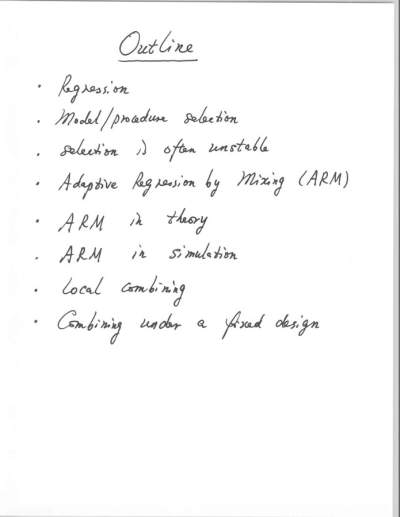 Outline
· Regression
· Model/procedure selection
· selection is often unstable
· Adaptive Regression by Mixing (ARM)
· ARM in theory
· ARM in simulation
· Local combining
· Combining under a fixed design